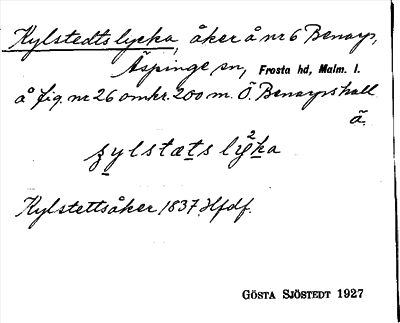 Kylstedtslycka, åker å nr 6 Benarp,
Äspinge sn, Frosta hd, Malm. l.
å fig. nr 26 omkr. 200 m. Ö. Benarpshall
ä.
Kylstettsåker 1837 Hfdf.
GÖSTA SJÖSTEDT 1927